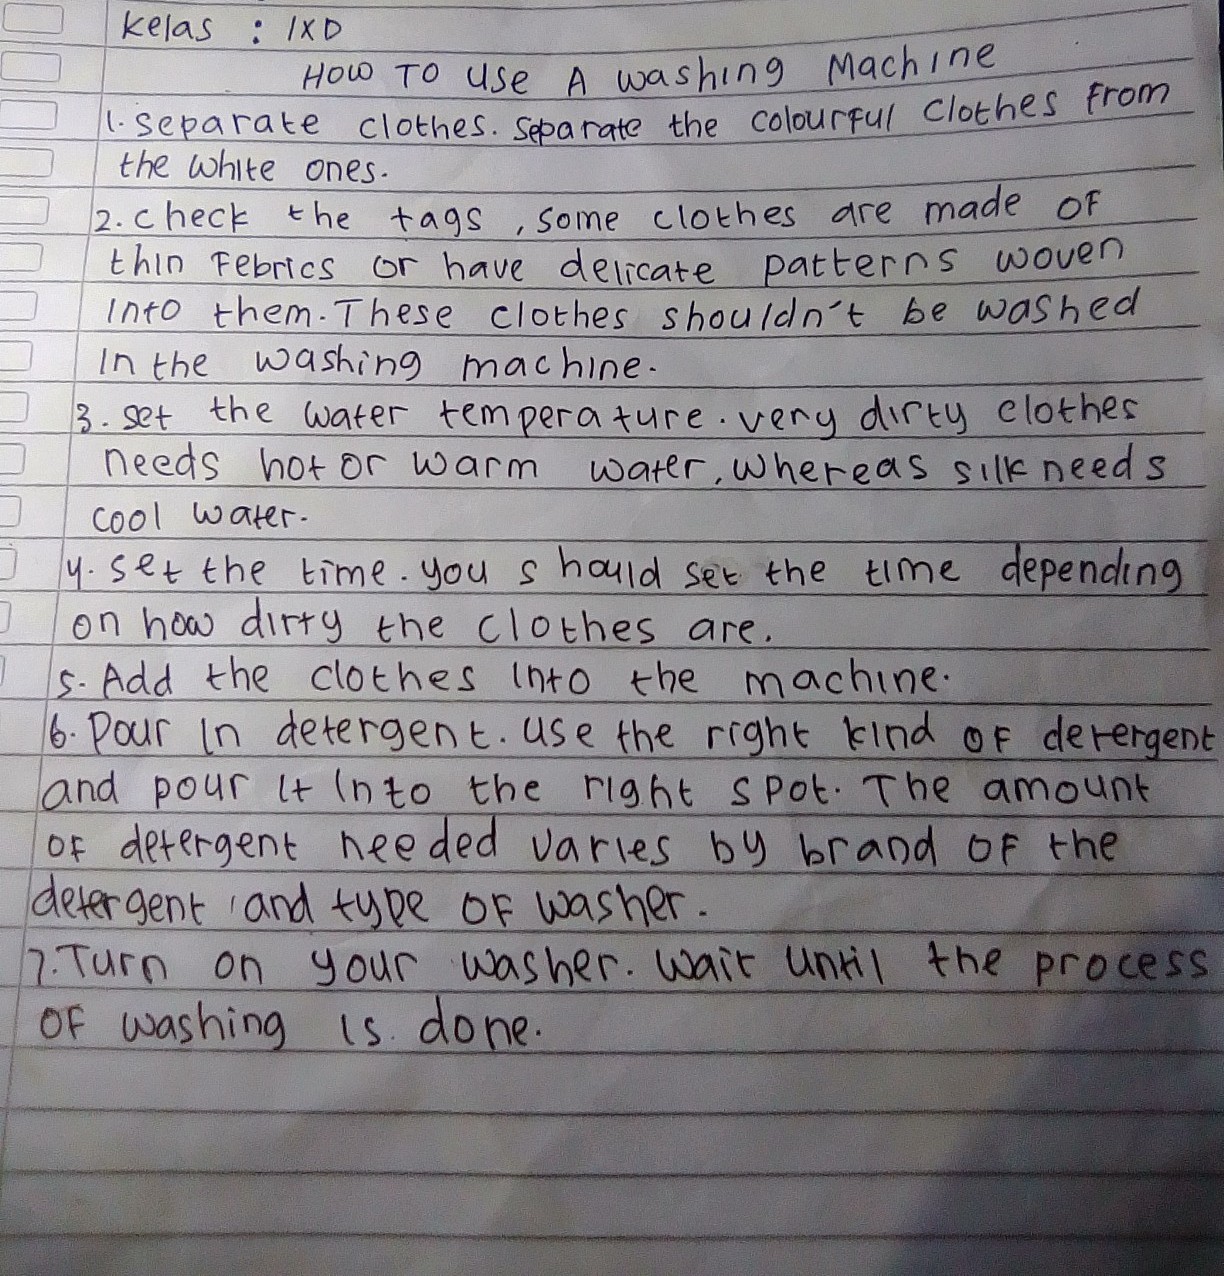 Kelas : IXD
HOW TO USE A washing Machine
1. Separate clothes. Separate the colourful clothes from
the white ones.
2. check the tags, some clothes are made of
thin Febrics or have delicate patterns woven
into them. These clothes shouldn't be washed
in the washing machine.
3. set the water temperature. very dirty clothes
needs hot or warm water, whereas silk needs
cool water.
4. set the time. you should set the time depending
on how dirty the clothes are.
5. Add the clothes into the machine.
6. Pour in detergent. use the right kind of detergent
and pour it into the right spot. The amount
of detergent needed varies by brand of the
detergent, and type of washer.
7. Turn on your washer. wait until the process
of washing is done.